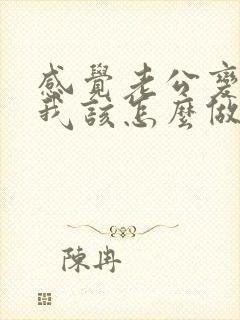 感覺老公變
我該怎麼做
陳冉